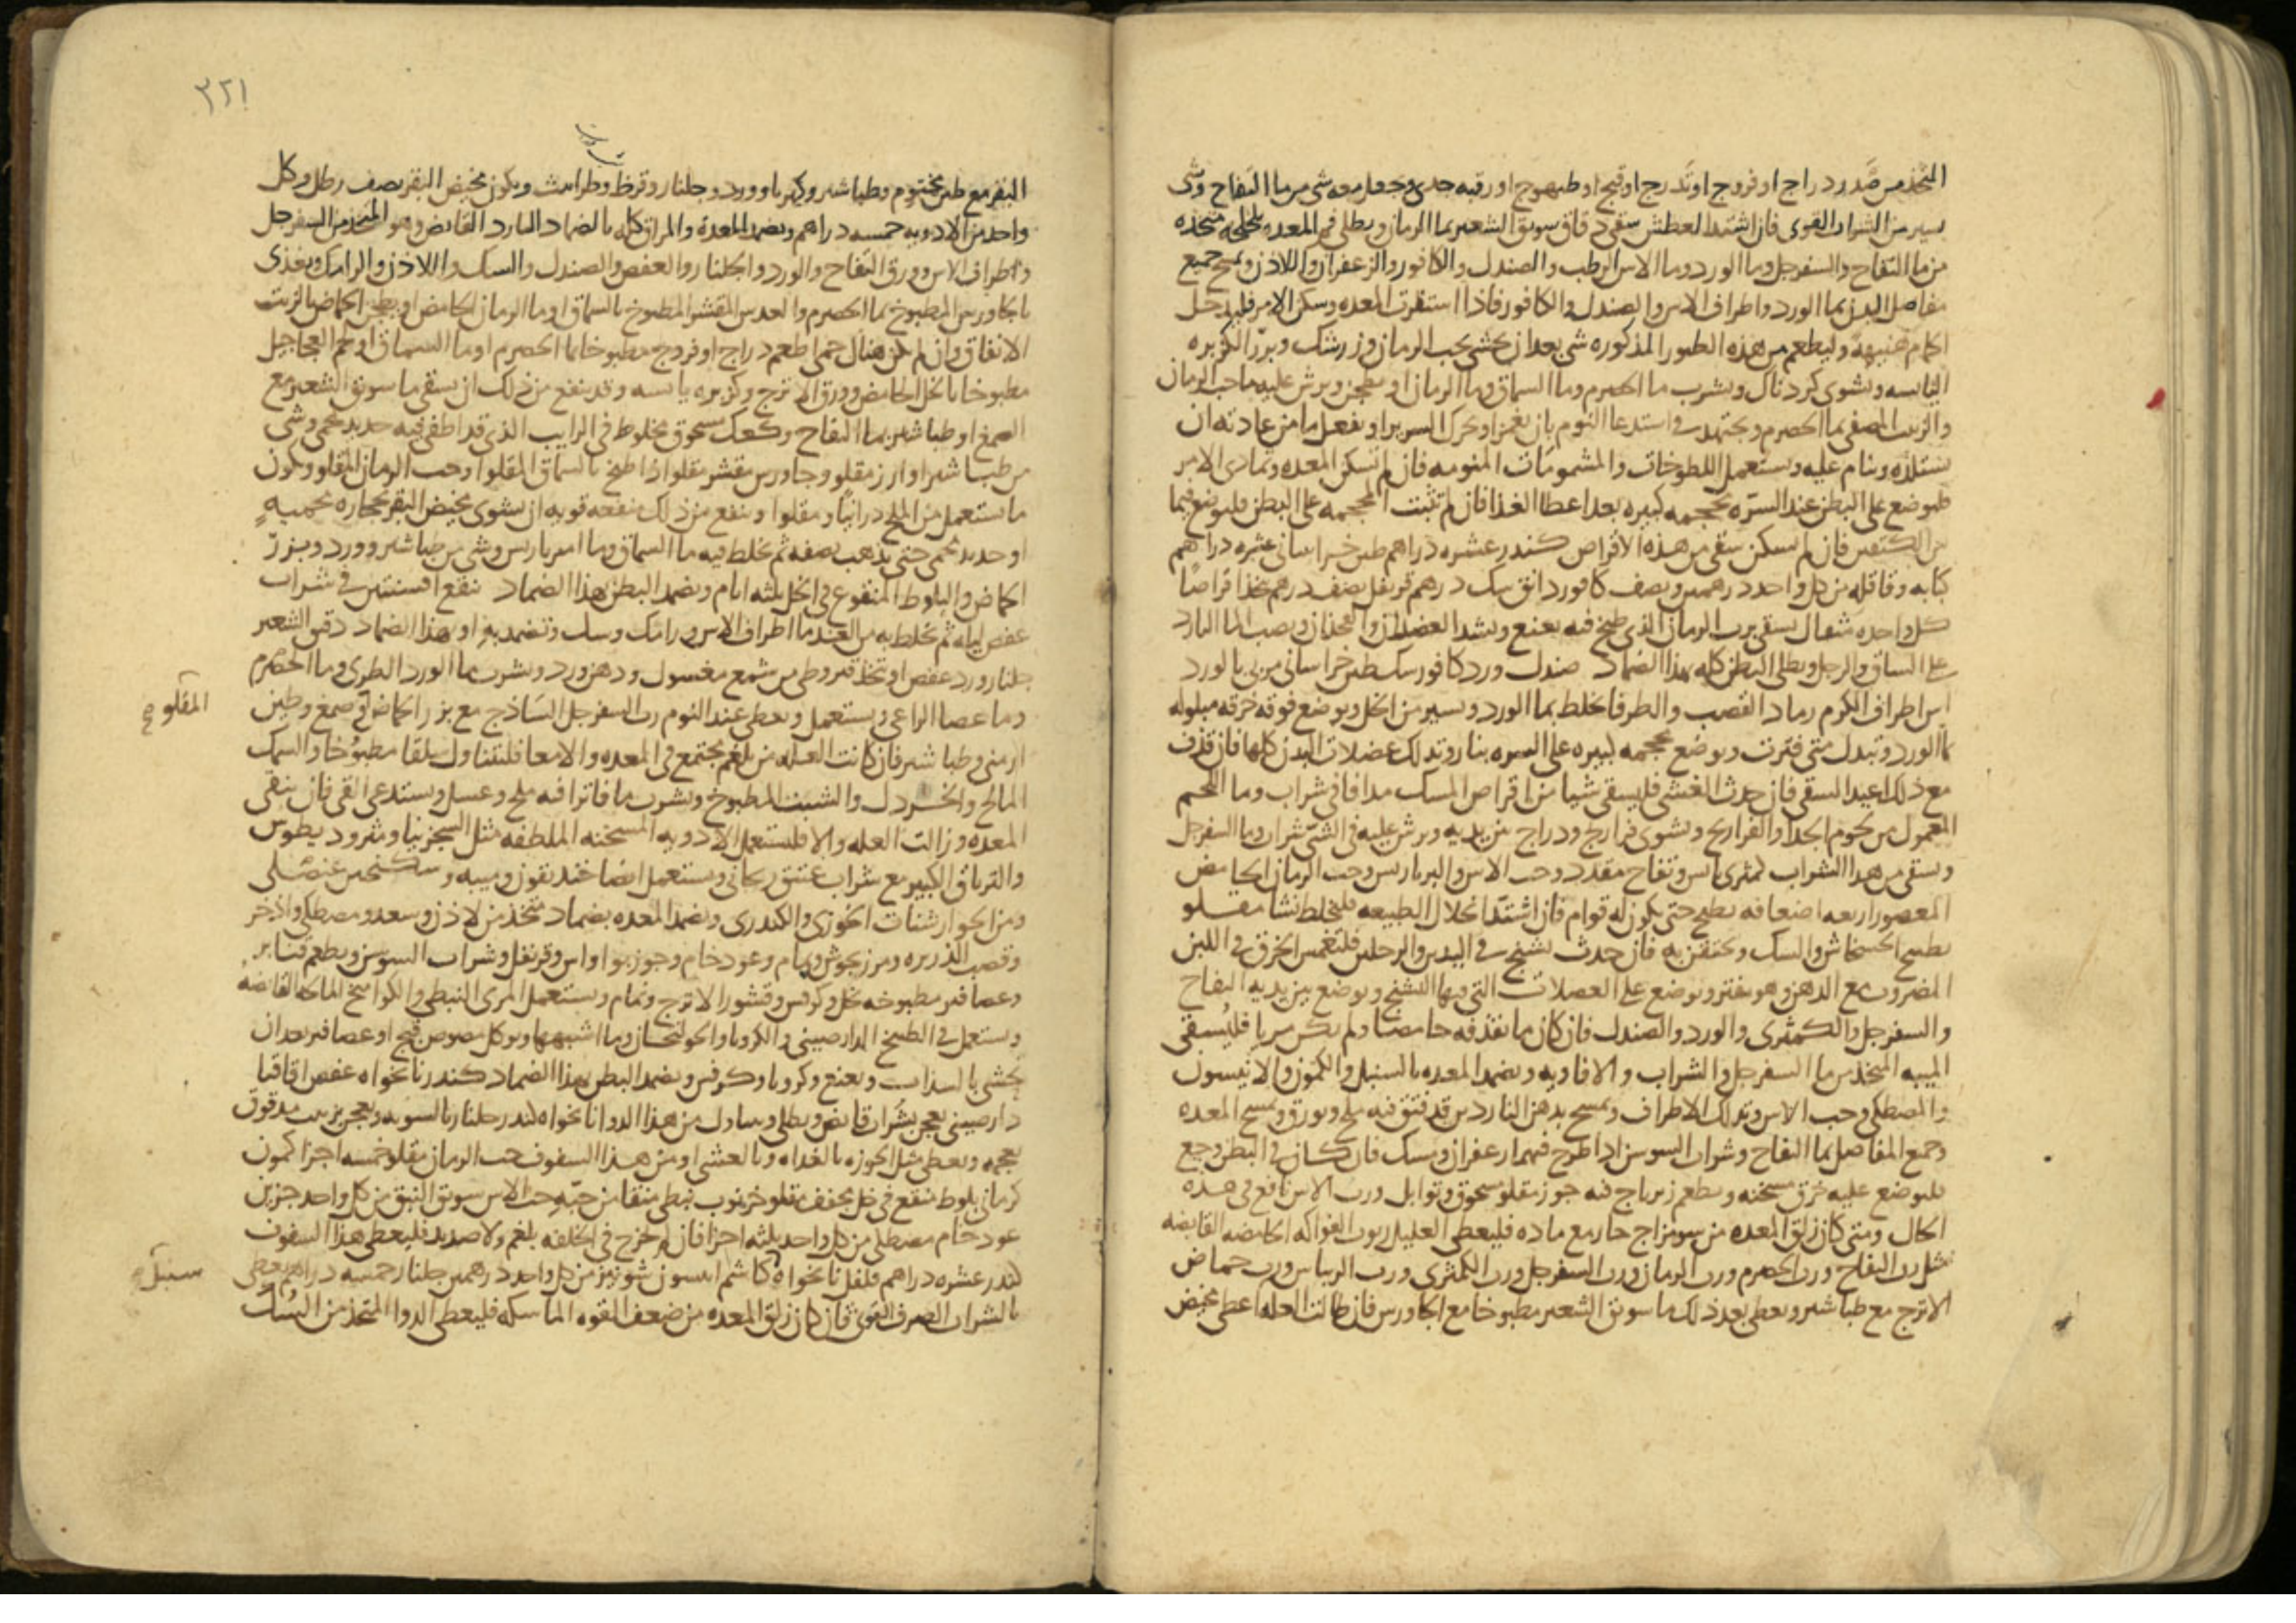 المتخذ من صدر دراج او فروج او تدرج او قبج او طيهوج او رقبه جدى وجعل معه شى من ما التفاح وشى
يسير من الشراب القوى فان اشتد العطش سقى دقاق سويق الشعير بما الرمان ويطلى فم المعده بلخلخه متخذه
من ما التفاح والسفرجل وما الورد وما الاس الرطب والصندل والكافور والزعفران واللاذن ويمسح جميع
مفاصل البدن بما الورد واطراف الاس والصندل والكافور فاذا استقرت المعده وسكن الامر فليدخل
الحمام هنيهة وليطعم من هذه الطيور المذكوره شى بعد ان يحشى بحب الرمان وزرشك وبرز الكزبره
اليابسه ويشوى كردناك ويشرب ما الحصرم وما السماق وما الرمان او يطجن ويرش عليه ما حب الرمان
والزيت المصفى بما الحصرم ويجتهد فى استدعا النوم بان يغمز او يحرك السرير او يفعل ما من عادته ان
يستلذه وينام عليه ويستعمل اللطوخات والمشمومات المنومه فان لم تسكن المعده وتمادى الامر
فليوضع على البطن عند السرّه محجمه كبيره بعد اعطا الغذا فان لم تثبت المحجمه على البطن فليوضع فيما
بين الكتفين فان لم يسكن سقى من هذه الاقراص كندر عشره دراهم طين خراسانى عشره دراهم
كبابه وقاقله من كل واحد درهمين ونصف كافور دانق سك درهم قرنفل نصف درهم يتخذ اقراصا
كل واحده مثقال يسقى برب الرمان الذى طبخ فيه نعنع ويشد العضلان والفخذان ويصب الما البارد
على الساق والرجل ويطلى البطن كله بهذا الضماد صندل ورد كافور سك طين خراسانى مربى بالورد
اس اطراف الكرم رماد القصب والطرفا يخلط بما الورد ويسير من الخل ويوضع فوقه خرقه مبلوله
بما الورد وتبدل متى فترت ويوضع محجمه كبيره على السره بنار وتدلك عضلات البدن كلها فان قذف
مع ذلك اعيد السقى فان حدث الغشى فليسقى شيا من اقراص المسك مدافا فى شراب وما اللحم
المعمول من لحوم الجدا والفراريج ويشوى فراريج ودراج بين يديه ويرش عليه فى الشى شراب وما السفرجل
ويسقى من هذا الشراب كمثرى يابس وتفاح مقدد وحب الاس والبرباريس وحب الرمان الحامض
المعصور اربعه اضعافه يطبخ حتى يكون له قوام فان اشتد انحلال الطبيعه فليخلط نشا مقلو
بطبيخ الخشخاش والسك ويحتقن به فان حدث تشنج فى اليدين والرجلين فلتغمس الخرق فى اللبن
المضروب مع الدهن وهو مفتر وتوضع على العضلات التى فيها التشنج ويوضع بين يديه التفاح
والسفرجل والكمثرى والورد والصندل فان كان ما نقذفه حامضا ولم يكن مريا فليُسقى
الميبه المتخذ من ما السفرجل والشراب والافاويه ويضمد المعده بالسنبل والكمون والانيسون
والمصطكى وحب الاس وتدلك الاطراف وتمسح بدهن الناردين قد فتق فيه ملح وبورق وتمسح المعده
وجمع المفاصل بما التفاح وشراب السوسن اذا طرح فيهما زعفران وسك فان كان فى البطن وجع
فليوضع عليه خرق مسخنه ويطعم زيرباج فيه جوز مقلو مسحوق وتوابل ورب الاس نافع فى هذه
الحال ومتى كان زلق المعده من سومزاج حار مع ماده فليعطى العليل ربوب الفواكه الحامضه القابضه
مثل رب التفاح ورب الحصرم ورب الرمان ورب السفرجل ورب الكمثرى ورب الريباس ورب حماض
الاترج مع طباشير ويعطى بعد ذلك ما سويق الشعير مطبوخا مع الجاورس فان طالت العله اعطى مخيض
٣٢١
البقر مع طين مختوم وطباشير وكهربا وورد وجلنار وقرظ وطراثيث ويكون مخيض البقر نصف رطل وكل
واحد من الادويه خمسه دراهم ويضمد المعدة والمراق كله بالضماد البارد القابض وهو المتخذ من السفرجل
واطراف الاس وورق التفاح والورد والجلنار والعفص والصندل والسك واللاذن والرامك ويغذى
بالجاورس المطبوخ بما الحصرم والعدس المقشر المطبوخ بالسماق او ما الرمان الحامض او يطجن الحماض بالزيت
الانفاق وان لم يكن هناك حمى اطعم دراج او فروج مطبوخا بما الحصرم او ما السماق او لحم العجاجيل
مطبوخا بالخل الحامض وورق الاترج وكزبره يابسه وقد ينفع من ذلك ان يسقى ما سويق الشعير مع
الصمغ او طباشير بما التفاح وكعك مسحوق مخلوط فى الرايب الذى قد اطفى فيه حديد محمى وشى
من طباشير او ارز مقلو وجاورس مقشر مقلو اذا طبخ بالسماق المقلو او حب الرمان المقلو ويكون
ما يستعمل من الملح درانيا ومقلوا وينفع من ذلك منفعه قويه ان يشوى مخيض البقر بحجاره محميهٍ
او حديد محمى حتى يذهب نصفه ثم يخلط فيه ما السماق وما امبرباريس وشى من طباشير وورد وبزر
الحماض والبلوط المنقوع فى الخل ثلثه ايام ويضمد البطن بهذا الضماد ينقع افسنتين فى شراب
عفص ليله ثم يخلط به من الغد ما اطراف الاس ورامك وسك وتضمد به او بهذا الضماد دقيق الشعير
جلنار ورد عفص او يتخذ قيروطى من شمع مغسول ودهن ورد ويشرب بما الورد الطرى وما الحصرم
وما عصا الراعى ويستعمل ويعطى عند النوم رب السفرجل الساذج مع بزر الحماض وصمغ وطين
المقلو صح
ارمنى وطباشير فان كانت العله من بلغم يجتمع فى المعده والامعا فليتناول سلقا مطبوُخا والسمك
المالح والخردل والشبت المطبوخ ويشرب ما فاترا فيه ملح وعسل ويستدعى القى فان ينقى
المعده وزالت العله والا فليستعمل الادويه المسخنه الملطفه مثل السجزنيا ومثروديطوس
والترياق الكبير مع شراب عتيق ريحانى ويستعمل ايضا خنديقون وميبه وسكنجبين عنصلى
ومن الجوارشنات الخوزى والكندرى ويضمد المعده بضماد متخذ من لاذن وسعد ومصطكى واذخر
وقصب الذريره ومرزنجوش ونمام وعود خام وجوزبوا واس وقرنفل وشراب السوسن ويطعم قنابر
وعصافير مطبوخه بخل وكرفس وقشور الاترج ونمام ويستعمل المرى النبطى والكواميخ المالحه القابضه
ويستعمل فى الطبيخ الدارصينى والكرويا والخولنجان وما اشبهها ويوكل مصوص قبج او عصافير بعد ان
يحشى بالسذاب ونعنع وكرويا وكرفس ويضمد البطن بهذا الضماد كندر نانخواه عفص اقاقيا
دارصينى يعجن بشراب قابض ويطلى ويتناول من هذا الدوا نانخواه كندر جلنار بالسويه ويعجن بزبيب مدقوق
بعجمه ويعطى مثل الجوزه بالغداه وبالعشى او من هذا السفوف حب الرمان مقلو خمسه اجزا كمون
كرمانى بلوط منقع فى خل مجفف مقلو خرنوب نبطى منقا من حبّه حب الاس سويق النبق من كل واحد جزين
عود خام مصطكى من كل واحد ثلثه اجزا فان لم يخرج فى الخلفه بلغم ولا صديد فليعطى هذا السفوف
كندر عشره دراهم فلفل نانخواه كاشم انيسون شونيز من كل واحد درهمين جلنار خمسه دراهم يعطى
سنبل
بالشراب الصرف القوى فان كان زلق المعده من ضعف القوه الماسكه فليعطى الدوا المتخذ من السُك